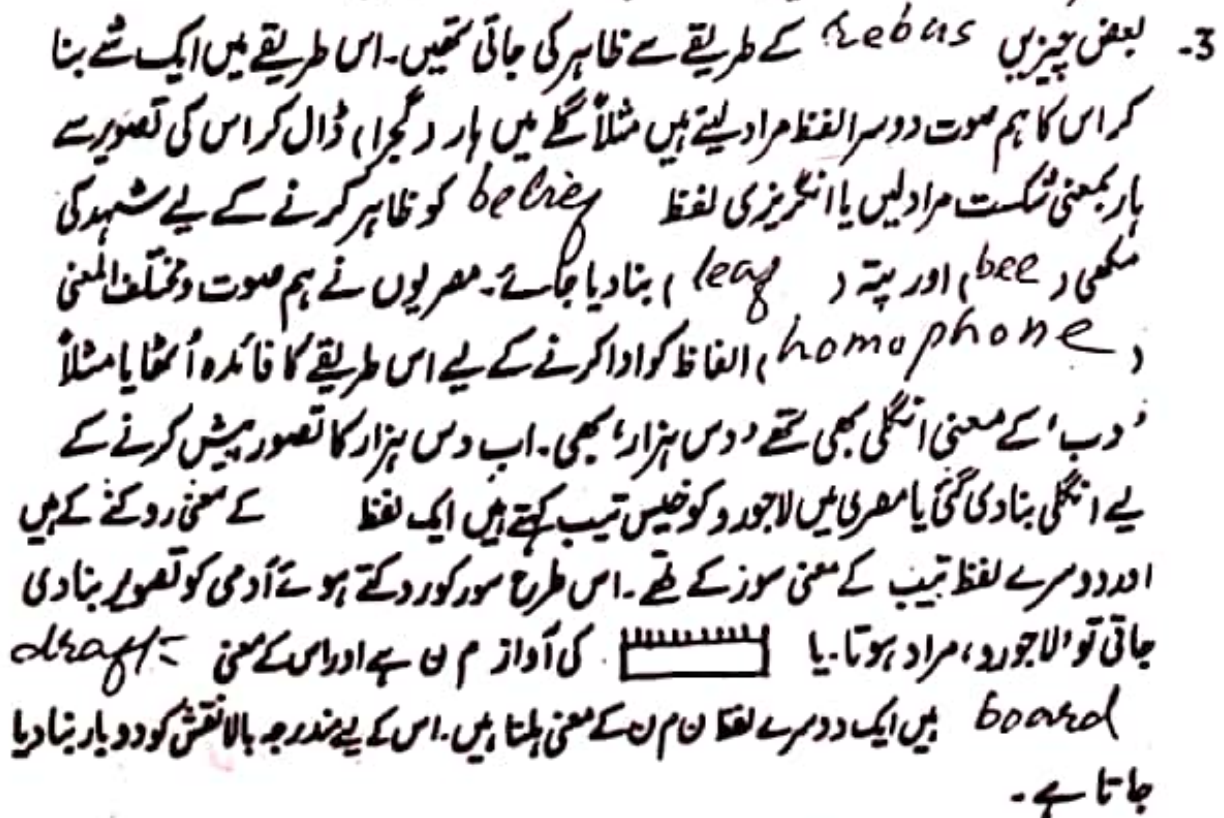 3- بعض چیزیں rebus کے طریقے سے ظاہر کی جاتی تھیں۔ اس طریقے میں ایک شے بنا
کر اس کا ہم صوت دوسرا لفظ مراد لیتے ہیں مثلاً گلے میں ہار (گجرا) ڈال کر اس کی تصویر سے
ہار بمعنی شکست مراد لیں یا انگریزی لفظ belief کو ظاہر کرنے کے لیے شہد کی
مکھی (bee) اور پتہ (leaf) بنا دیا جائے۔ مصریوں نے ہم صوت و مختلف المعنی
(homophone) الفاظ کو ادا کرنے کے لیے اس طریقے کا فائدہ اُٹھایا مثلاً
'دب' کے معنی انگلی بھی تھے 'دس ہزار' بھی۔ اب دس ہزار کا تصور پیش کرنے کے
لیے انگلی بنا دی گئی یا مصری میں لاجورد کو خیس تیب کہتے ہیں ایک لفظ کے معنی روکنے کے ہیں
اور دوسرے لفظ تیب کے معنی سوز کے تھے۔ اس طرح سور کو روکتے ہوئے آدمی کو تصویر بنا دی
جاتی تو 'لاجورد' مراد ہوتا۔ یا کی آواز م ن ہے اور اس کے معنی draft-
board ہیں ایک دوسرے لفظ ن م ن کے معنی ہلنا ہیں۔ اس کے لیے مندرجہ بالا نقش کو دو بار بنا دیا
جاتا ہے۔